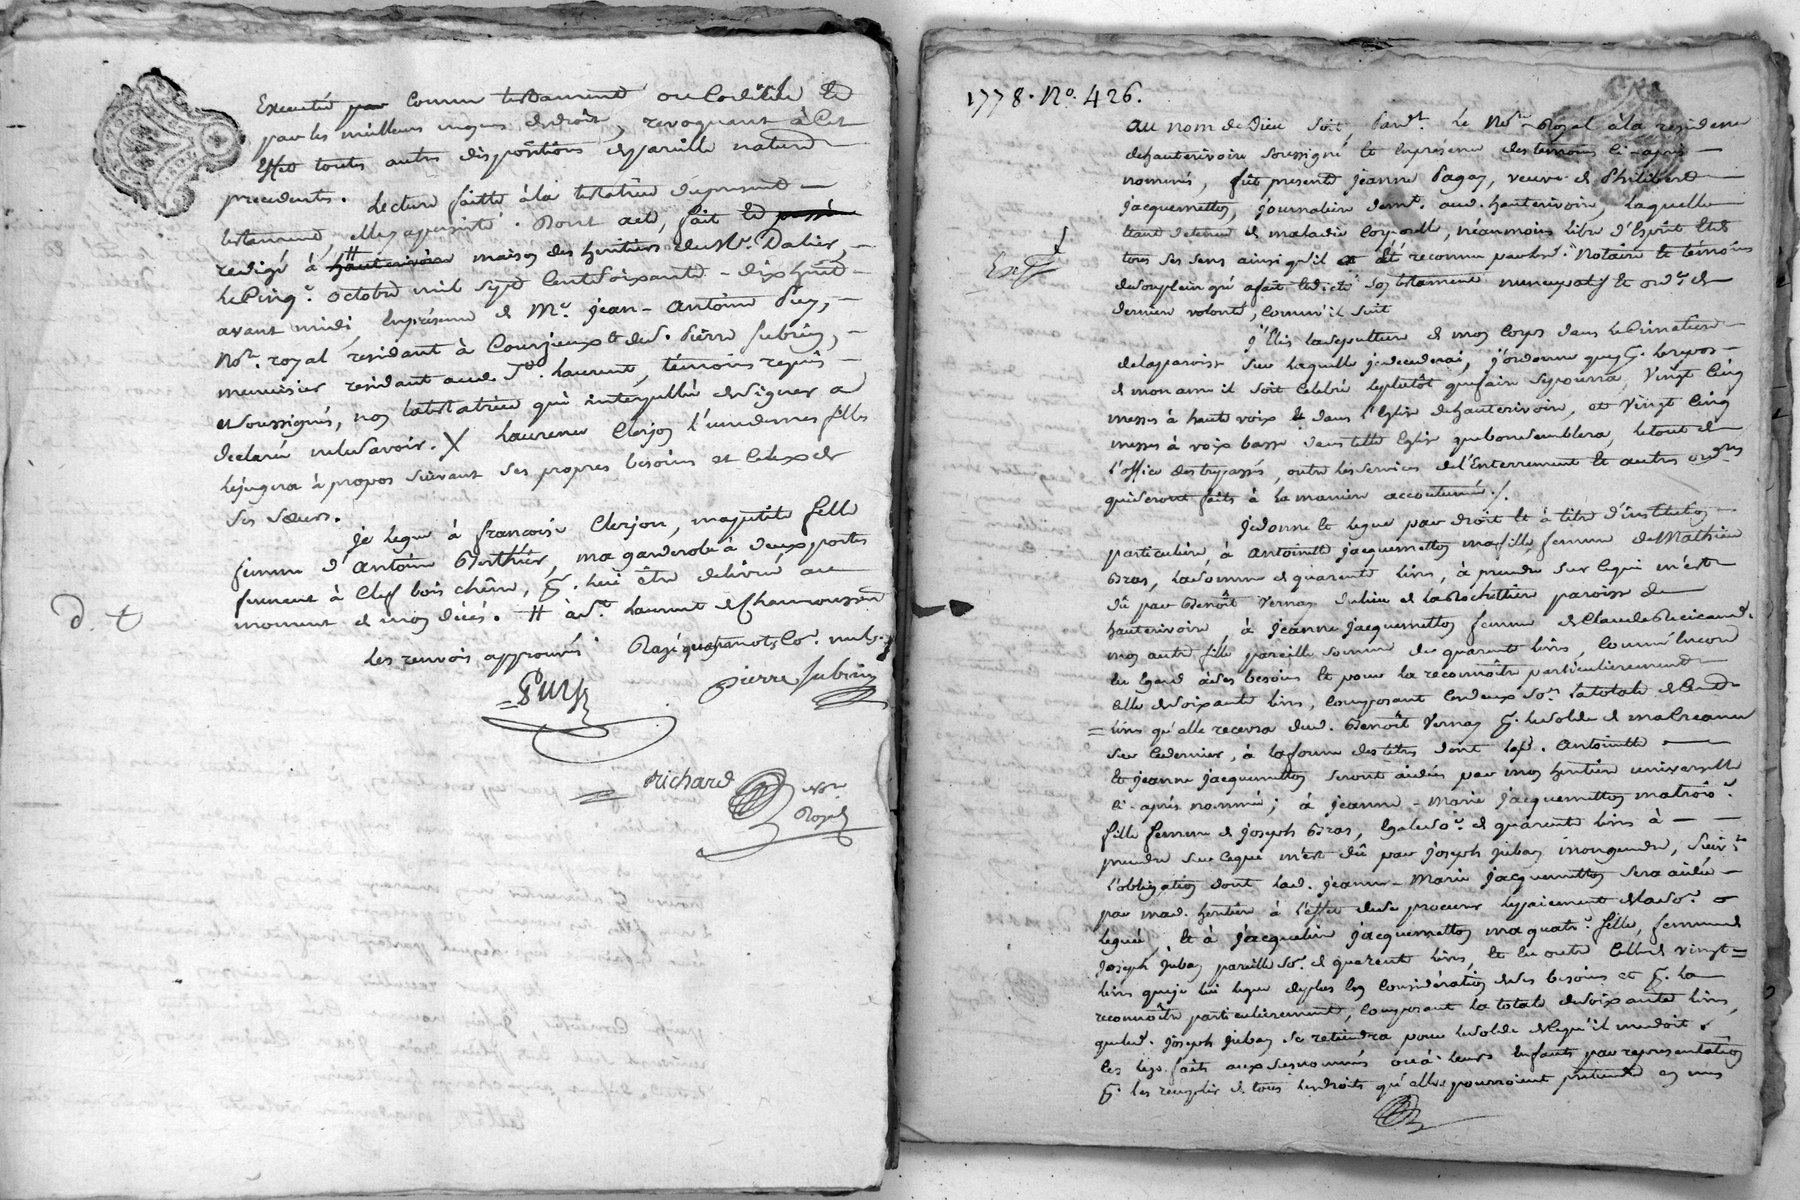 Executé par comme testament ou Codicile et
par les meilleurs moyens de droit, revoquant à cet
Effet toutes autres dispositions de pareille nature
precedentes. Lecture faitte à la testatrice du present
testament, elle y a persisté. Dont acte, fait et passé
redigé à hauterivoire maison des heritiers du Sr. Dalier,
Le cinq.e octobre mil sept cent soixante-dix huit
avant midi, En présence de Me. jean-antoine Puy,
Nore. royal residant à Courzieux et de S. Pierre Jubrin,
menuisier residant aud. St. Laurent, témoins requis
et soussignés, non la testatrice qui interpellée de signer a
declaré ne le savoir. X Laurence Clerjon l'une de mes filles
le jugera à propos suivant ses propres besoins et Ceux de
ses sœurs.
je legue à francoise Clerjon, ma petite fille
femme d'antoine Berthier, ma garderobe à deux portes
fermant à Clef bois chêne, p. lui être delivré au
moment de mon décés. H à St. Laurent de Chamousset
d. t
Les renvois approuvés Rayé quatre mots Co. nuls.
Puy
pierre Jubrin
Richard
Nore
Royal
1778. No. 426.
au nom de Dieu soit, Pardt. Le Nore. Royal à la residence
de hauterivoire soussigné et En presence des temoins ci-après
nommés, fût presente jeanne Pagay, veuve de Philibert
jacquemetton, journaliere demt. aud. hauterivoire, laquelle
étant detenue de maladie Corporelle, néanmoins libre d'Esprit et de
tous ses sens ainsi qu'il a été reconnu par led. Notaire et témoins
Exp
de son plein gré a fait et dicté son testament nuncupatif et ord.re de
derniere volonté, Comm'il suit
j'Elis la sepulture de mon Corps dans le Cimetiere
de la paroisse sur laquelle je decederai, j'ordonne que p. le repos
de mon ame il soit Celebré le plutôt que faire se pourra, Vingt Cinq
messes à haute voix et dans l'Eglise de hauterivoire, et Vingt Cinq
messes à voix basse dans telle Eglise que bon semblera, le tout de
l'office des trepassés, outre les services de l'Enterrement et autres ord.res
qui seront faits à la maniere accoutumée.
je donne et legue par droit et à titre d'institution
particuliere, à antoinette jacquemetton ma fille, femme de Mathieu
Gras, la somme de quarente livres, à prendre sur Ce qui m'est
dû par Benoît Vernay du lieu de la Rochettiere paroisse de
hauterivoire à jeanne jacquemetton femme de Claude
mon autre fille pareille somme de quarente livres, comme Encore
En Egard à ses besoins et pour la reconnoître particulierement
Celle de soixante livres, Composant Ces deux So.es la totale de Cent
livres qu'elle recevra dud. Benoît Vernay p. le solde de ma Creance
sur Ce dernier, à la forme des titres dont lesd. antoinette
et jeanne jacquemetton seront aidées par mon heritiere universelle
ci-après nommée; à jeanne-marie jacquemetton ma trois.e
fille femme de joseph Gras, Egale So.e de quarente livres à
prendre sur Ce qui m'est dû par joseph jubay mon gendre, suivt.
l'obligation dont lad. jeanne-Marie jacquemetton sera aidée
par mad. heritiere à l'effet de se procurer le paiement de la So.e
leguée, et à jacqueline jacquemetton ma quatr.e fille, femme de
joseph jubay pareille So.e de quarente livres, et En outre Celle de vingt
livres que je lui legue de plus En Considération de ses besoins et p. la
reconnoître particulierement, Composant la totale de soixante livres,
que led. joseph jubay se retiendra pour le solde de Ce qu'il me doit.
les legs faits aux susnommés ou à leurs Enfants par representation
p. les remplir de tous les droits qu'elles pourroient pretendre en mes